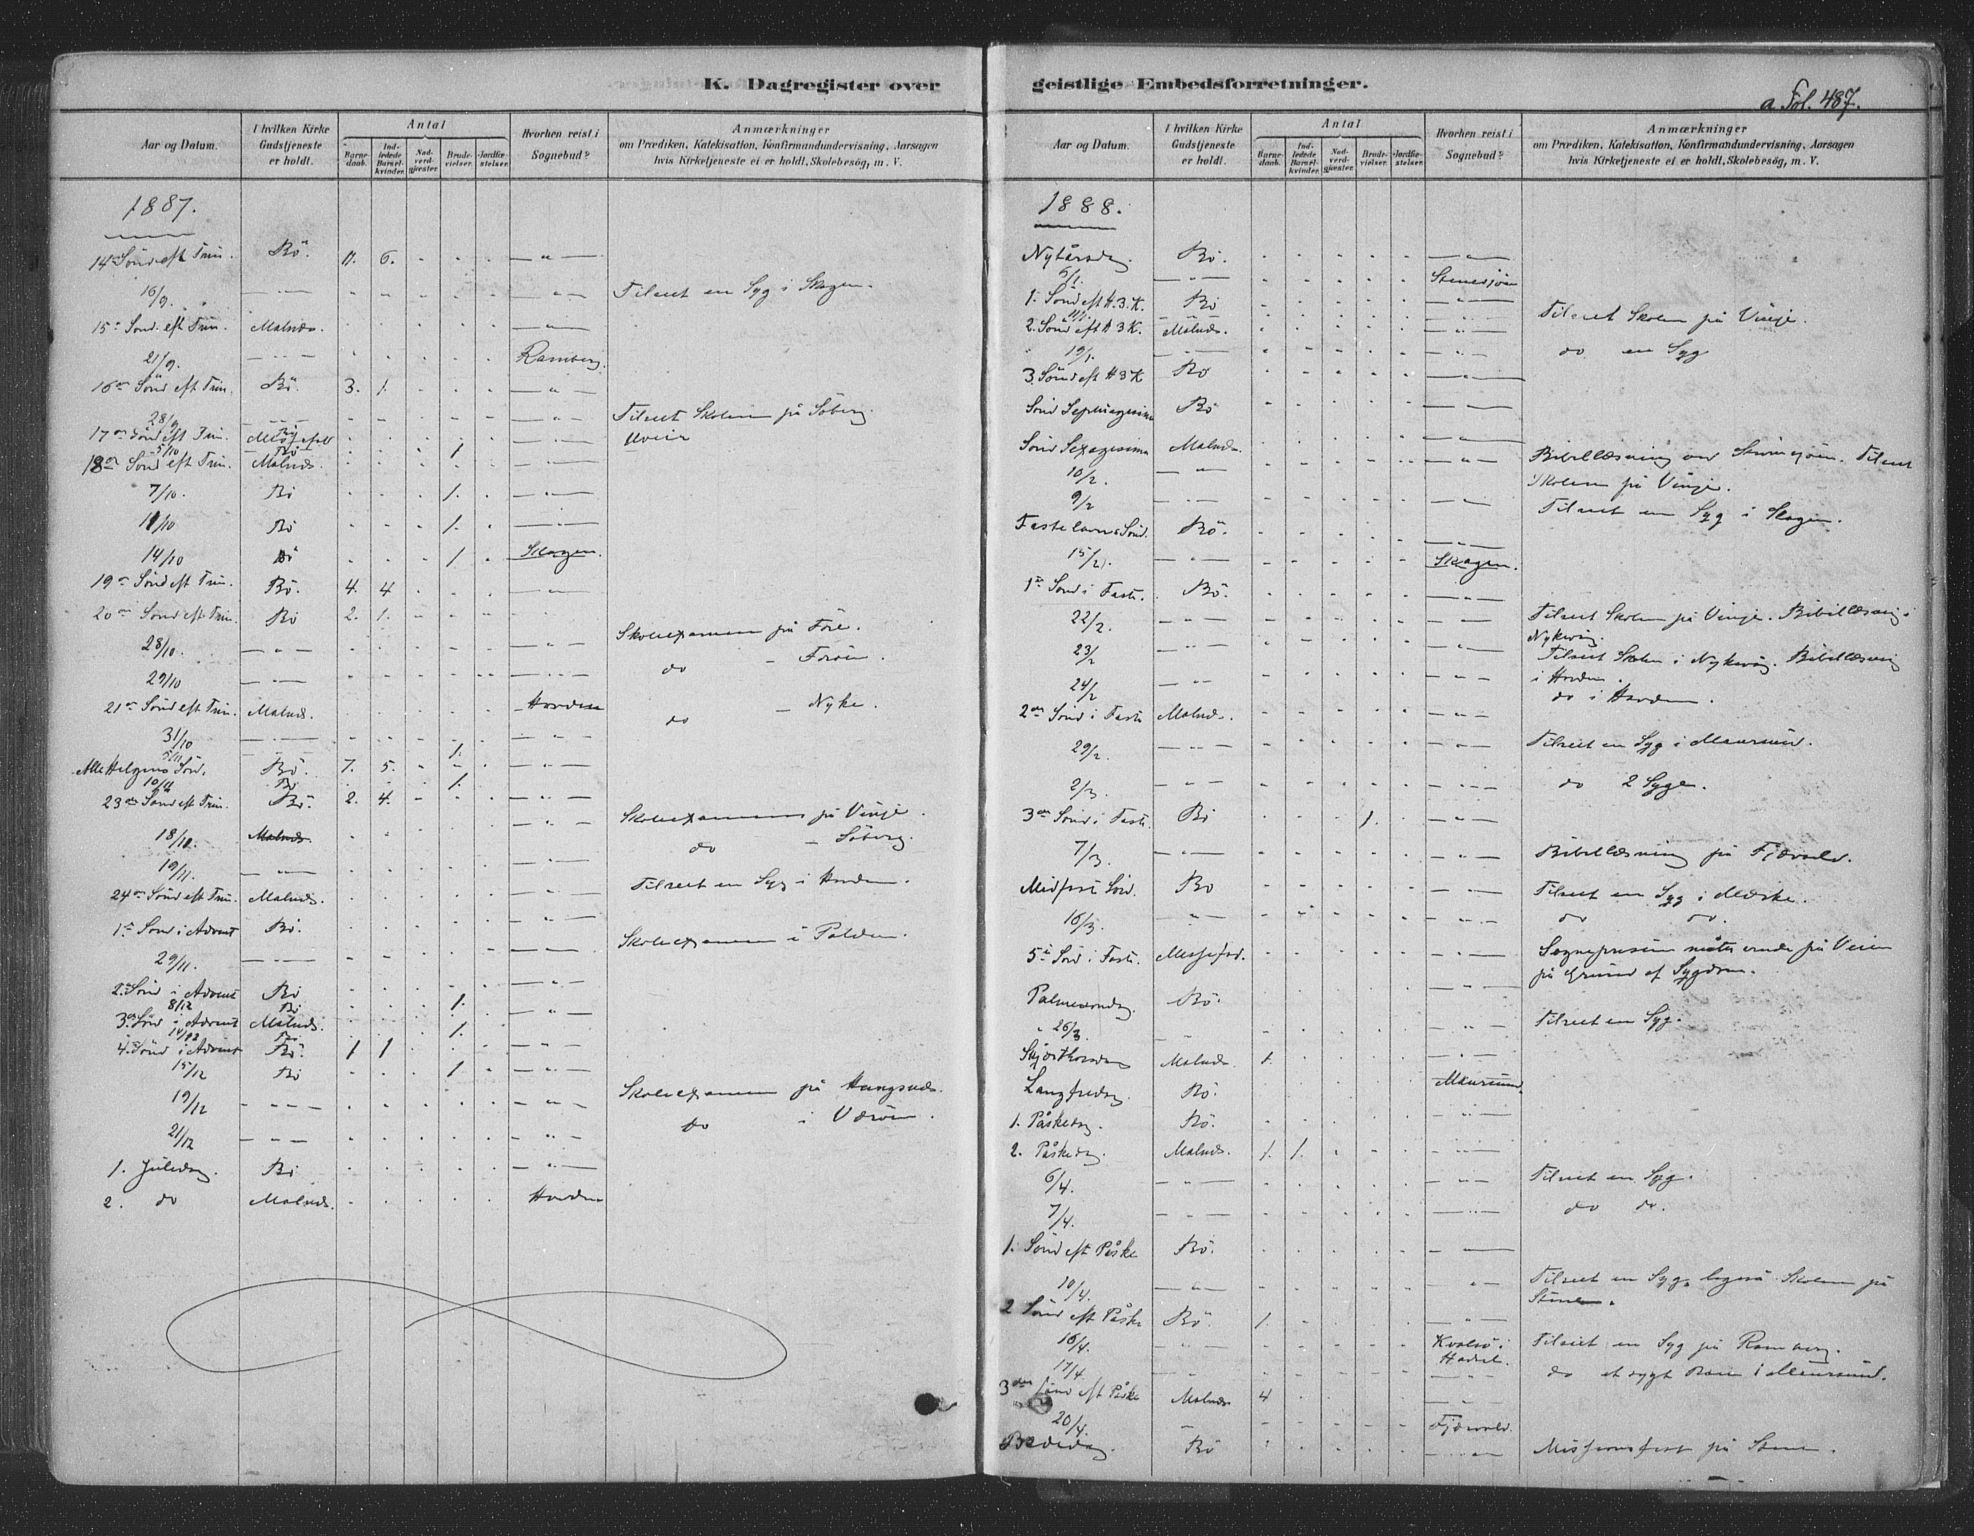 K. Dagregister over
geistlige Embedsforretninger.
a Fol. 487.
Aar og Datum.
I hvilken Kirke Gudstjeneste er holdt.
Antal
Barnedaab.
Indledede Barselkvinder.
Nadverdgjester.
Brudevielser.
Jordfæstelser.
Hvorhen reist i Sognebud?
Anmærkninger
om Prædiken, Katekisation, Konfirmandundervisning, Aarsagen
hvis Kirketjeneste ei er holdt, Skolebesøg, m. V.
1887.
14de Sönd. eft Trin. Bö. 11. 6.
16/9. Tilseet en Syg i Skagen.
15de Sönd. eft Trin. Malnæs.
21/9. Ramberg.
16de Sönd eft Trin. Bö. 3. 1.
28/9 Tilseet Skolen på Söberg.
17de Sönd eft Trin. Messefald Uveir
5/10 Bö 1.
18de Sönd eft Trin. Malnæs.
7/10. Bö 1.
11/10 Bö 1.
14/10 Bö 1. Skagen.
19de Sönd eft Trin. Bö. 4. 4
20de Sönd eft Trin. Bö 2. 1.
28/10. Skoleexamen på Före.
29/10 do - Foröen.
21de Sönd eft Trin. Malnæs. Hovden
31/10 do - Nyke.
5/11 1.
Alle Helgens Sönd. Bö. 7. 5.
10/11 Bö 1.
23de Sönd eft Trin. Bö. 2. 4.
18/11. Malnæs. Skoleexamen på Vinje.
19/11. do - Söberg.
24de Sönd eft Trin. Malnæs. Tilseet en Syg i Hovden.
1ste Sönd i Advent Bö.
29/11. Skoleexamen i Palden.
2. Sönd i Advent Bö
8/12 Bö 1.
3de Sönd i Advent Malnæs.
14/12 Bö 1.
4. Sönd i Advent Bö. 1 1
15/12 Bö 1.
19/12 Skoleexamen på Haugsnæs.
21/12 do i Væröen.
1. Juledag. Bö
2. do Malnæs. Hovden
Aar og Datum.
I hvilken Kirke Gudstjeneste er holdt.
Antal
Barnedaab.
Indledede Barselkvinder.
Nadverdgjester.
Brudevielser.
Jordfæstelser.
Hvorhen reist i Sognebud?
Anmærkninger
om Prædiken, Katekisation, Konfirmandundervisning, Aarsagen
hvis Kirketjeneste ei er holdt, Skolebesög, m. V.
1888.
Nytårsdag Bö.
5/1. Stenesjöen
1. Sönd eft H.3.K. Bö
11/1. Tilseet Skolen på Vinje.
2. Sönd eft H 3 K. Malnæs.
19/1. do en Syg
3. Sönd eft H 3 K Bö
Sönd Septuagesima Bö
Sönd Sexagesima Malnæs.
10/2. Bibellæsning ved Stenesjöen. Tilseet
Skolen på Vinje.
9/2 Tilseet en Syg i Skagen.
Fastelavns Sönd. Bö.
15/2. Skagen.
1ste Sönd i Faste. Bö.
22/2. Tilseet Skolen på Vinje. Bibellæsning i
Nykvåg.
23/2 Tilseet Skolen i Nykvåg. Bibellæsning
i Hovden.
24/2 do i Hovden.
2den Sönd i Faste Malnæs.
29/2. Tilseet en Syg i Maursund.
2/3. do 2 Syge.
3die Sönd i Faste. Bö 1.
7/3. Bibellæsning på Fjærvold.
Midfaste Sönd. Bö Tilseet en Syg i Mærske.
16/3. do do.
5te Sönd i Faste. Messefald. Sognepresten måtte vende på Veien
på Grund af Sygdom.
Palmesöndag Bö.
26/3. Tilseet en Syg.
Skjærthorsdag Malnæs 1.
Langfredag. Bö. Maursund.
1. Påskedag. Bö.
2. Påskedag. Malnæs. 1. 1.
6/4. Tilseet en Syg.
7/4. do do.
1. Sönd eft Påske Bö.
10/4. Tilseet en Syg, ligeså Skolen på
Stene.
2 Sönd eft Påske Bö. 1.
16/4. Kvalsö i Hadsel. Tilseet en Syg på Ramberg.
17/4 do et sygt Barn i Maursund.
3die Sönd eft Påske Malnæs 4
20/4. Fjærvold.
Bededag. Bö Missionsfest på Stene.